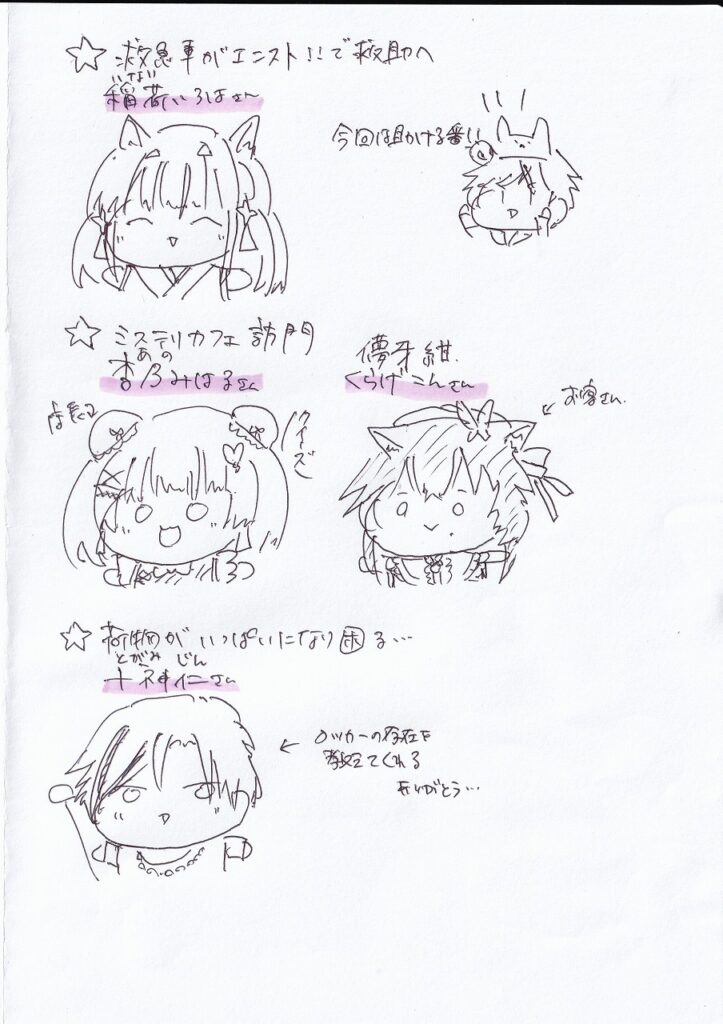 ☆ 救急車がエンスト!!で救助へ
いなり
稲荷いろはさん
今回は助ける番!!
☆ ミステリカフェ訪問
あの
杏乃みはるさん
店長さん
クイズ
儚牙紺
くらげこんさん
← お客さん
☆ 荷物がいっぱいになり困る…
とがみ じん
十神仁さん
← ロッカーの存在を
教えてくれる
ありがとう…